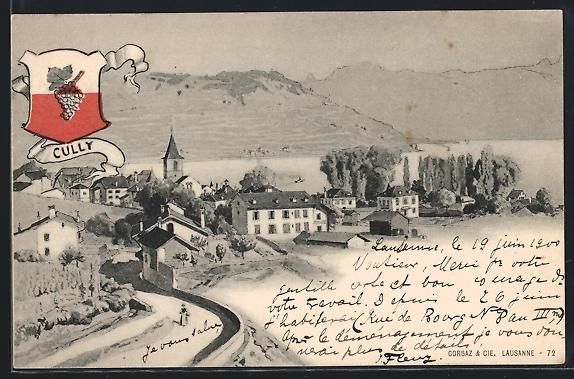 CULLY
Lausanne, le 19 juin 1900
Monsieur, Merci pr votre
gentille carte et bon courage de
votre travail. Depuis le 26 juin
j'habiterai Rue de Bourg N° 8 au IIIme
Après le déménagement je vous don
nerai plus de détails,
je vous salue
CORBAZ & CIE. LAUSANNE - 72